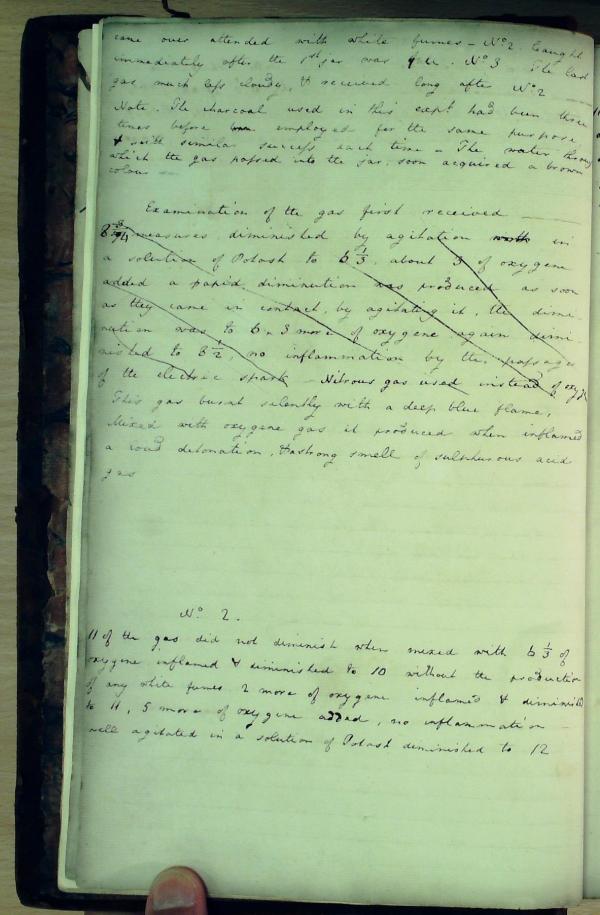 came over attended with white fumes – No 2. Caught
immediately after the 1st jar was full. No 3 The last
gas much less cloudy, & received long after No 2
Note. The charcoal used in this expt. had been three
times before employed for the same purpose
& with similar success each time – The water through
which the gas passed into the jar, soon acquired a brown
colour
Examination of the gas first received
measures diminished by agitation in
a solution of Potash to 6 1/3. about 3 of oxygene
added a rapid diminution was produced as soon
as they came in contact, by agitating it, the dimi-
nution was to 6. 3 more of oxygene again dimi-
nished to 8 1/2, no inflammation by the passage
of the electric spark – Nitrous gas used instead of oxyg
This gas burnt silently with a deep blue flame,
Mixed with oxygene gas it produced when inflamed
a loud detonation, & a strong smell of sulphurous acid
gas
No 2.
11 of the gas did not diminish when mixed with 6 1/3 of
oxygene inflamed & diminished to 10 without the production
of any white fumes 2 more of oxygene inflamed & diminished
to 11, 5 more of oxygene added, no inflammation –
well agitated in a solution of Potash diminished to 12